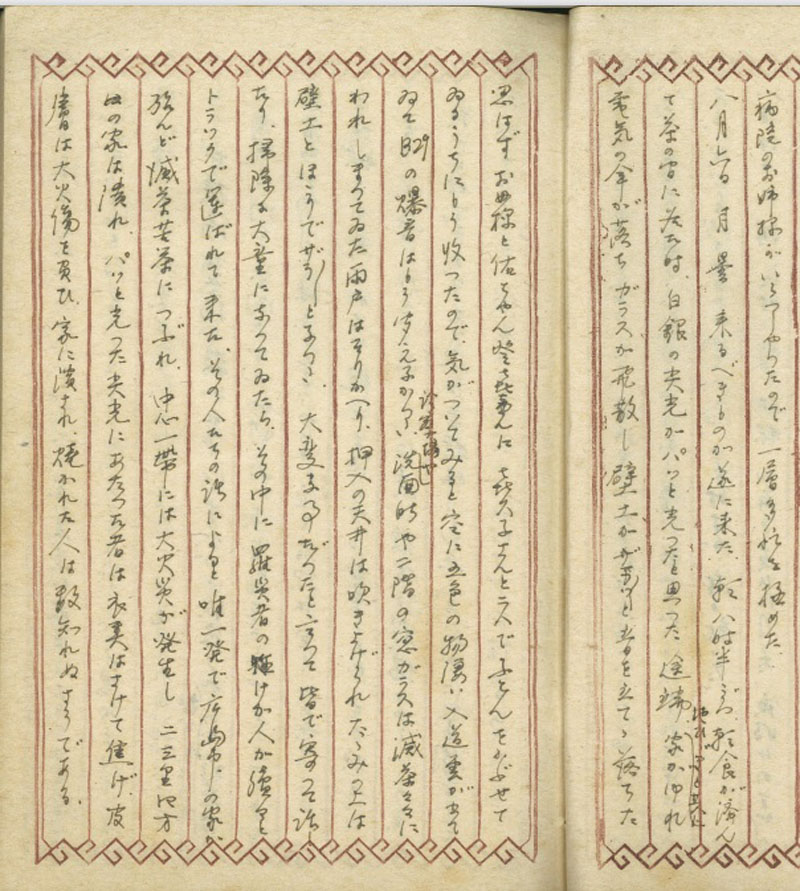 病院のお姉様がいらつしやつたので一層多忙を極めた
八月六日 月 曇 来るべきものが遂に来た。朝八時半ごろ、朝食が済ん
で茶の間に居た時、白銀の光がパッと光つたと思つた途端、家がゆれ
電気の傘が落ち ガラスが飛散し 壁土がザーッと音を立てゝ落ちた
思はず お母様と佑ちやん 登喜さんに 喜久子さんと二人でふとんをかぶせて
ゐるうちにもう収つたので、気がついてみると空に五色の物凄い入道雲が出て
ゐて B29の爆音はもう聞えなかつた、洗面所や二階の窓ガラスは滅茶々々に
われ しまつてゐた雨戸はそりかへり、押入の天井は吹き上げられ たゝみの上は
壁土とほこりでザラ〱となつた、大変な事だつたと言つて皆で寄つて話し
たり、掃除に大童になつてゐたら、その中に羅災者の怪けが人が続々と
トラックで運ばれて来た、その人たちの話によると唯一発で広島市の家が
殆んど滅茶苦茶につぶれ、中心一帯には大火災が発生し 二三里四方
の家は潰れ、パッと光つた光にあたつた者は衣類はさけて焦げ、皮
膚は大火傷を負ひ、家に潰され、焼かれた人は数知れぬさうである。